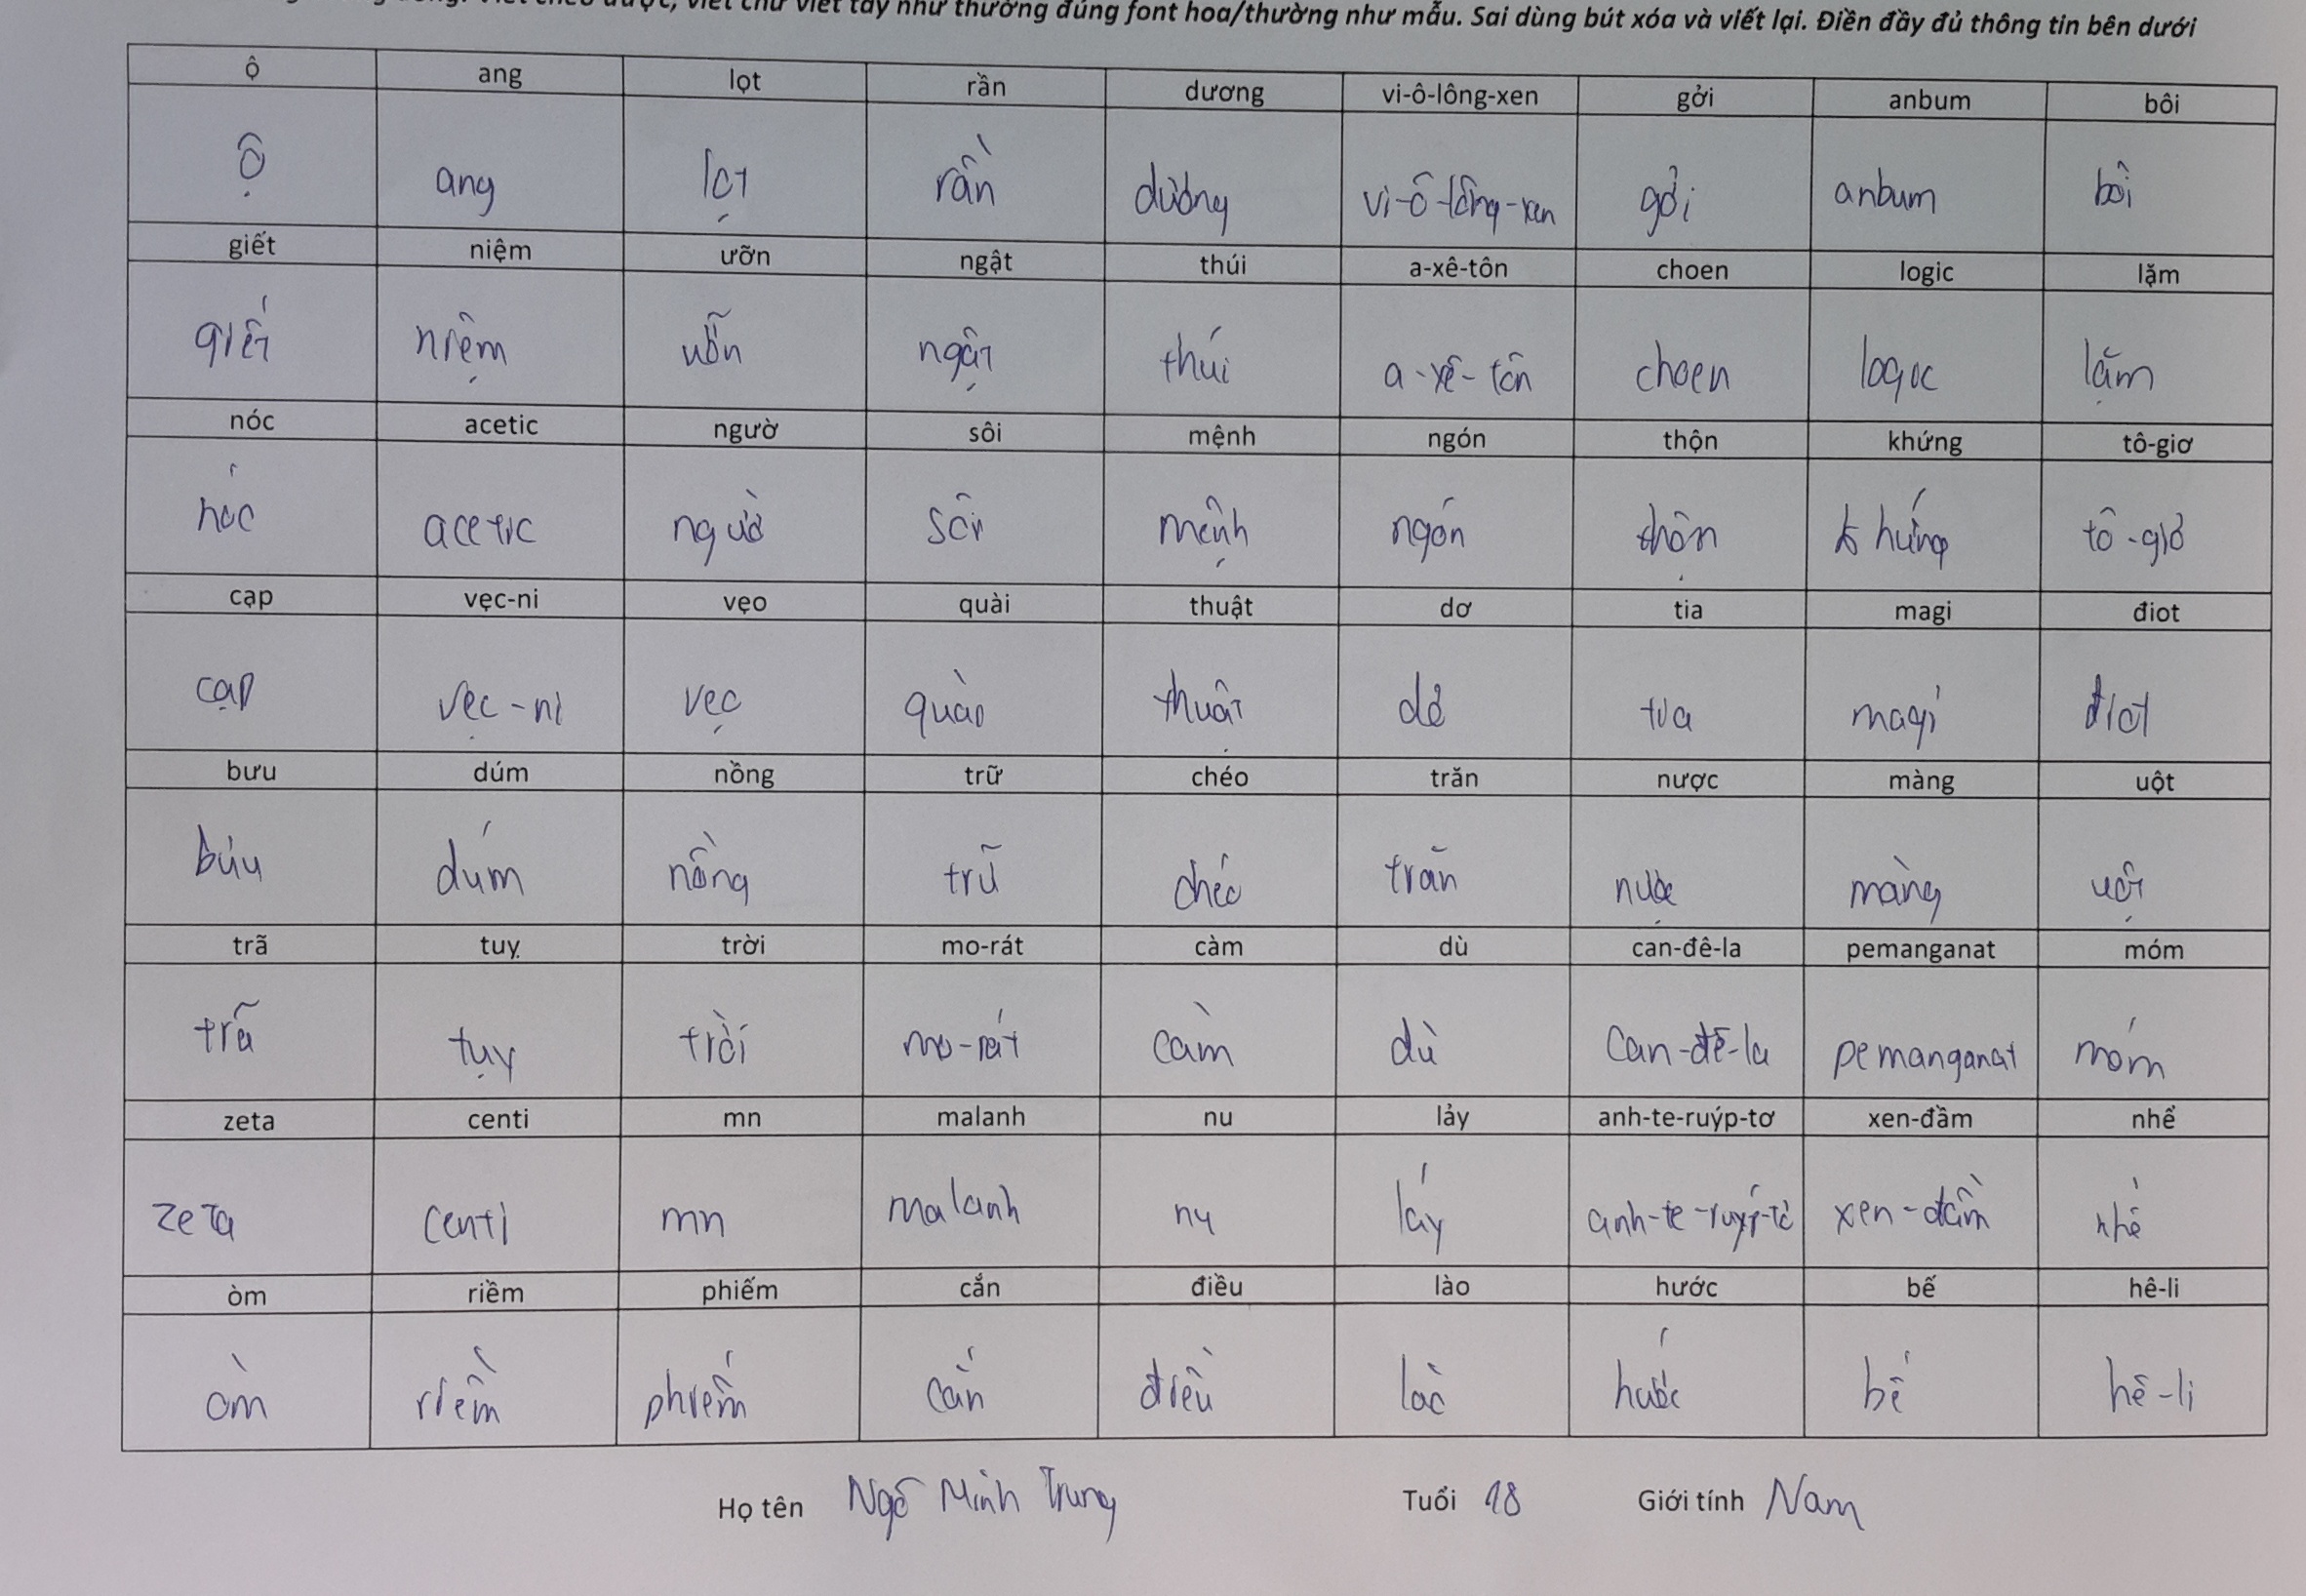 viết chữ viết tay như thường đúng font hoa/thường như mẫu. Sai dùng bút xóa và viết lại. Điền đầy đủ thông tin bên dưới
ộ ang lọt rần dương vi-ô-lông-xen gởi anbum bôi
ộ ang lọt rần dương vi-ô-lông-xen gởi anbum bôi
giết niệm ưỡn ngật thúi a-xê-tôn choen logic lặm
giết niệm ưỡn ngật thúi a-xê-tôn choen logic lặm
nóc acetic ngườ sôi mệnh ngón thộn khứng tô-giơ
nóc acetic ngườ sôi mệnh ngón thộn khứng tô-giơ
cạp vẹc-ni vẹo quài thuật dơ tia magi điot
cạp vẹc-ni vẹo quài thuật dơ tia magi điot
bưu dúm nồng trữ chéo trăn nược màng uột
bưu dúm nồng trữ chéo trăn nược màng uột
trã tuỵ trời mo-rát càm dù can-đê-la pemanganat móm
trã tụy trời mo-rát càm dù can-đê-la pemanganat móm
zeta centi mn malanh nu lảy anh-te-ruýp-tơ xen-đầm nhể
zeta centi mn malanh nu lảy anh-te-ruýp-tơ xen-đầm nhể
òm riềm phiếm cắn điều lào hước bế hê-li
òm riềm phiếm cắn điều lào hước bế hê-li
Họ tên Ngô Minh Trung Tuổi 18 Giới tính Nam